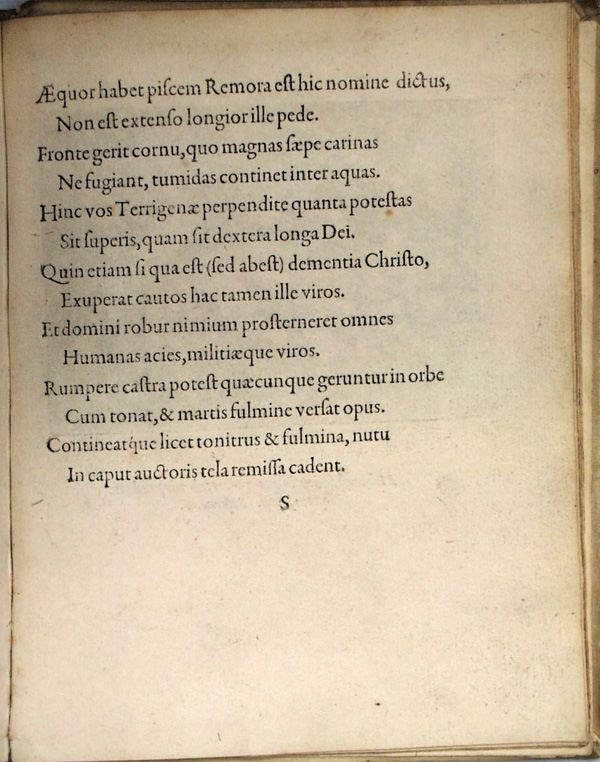 Æquor habet piſcem Remora eſt hic nomine dictus,
Non eſt extenſo longior ille pede.
Fronte gerit cornu, quo magnas ſæpe carinas
Ne fugiant, tumidas continet inter aquas.
Hinc vos Terrigenæ perpendite quanta poteſtas
Sit ſuperis, quam ſit dextera longa Dei.
Quin etiam ſi qua eſt (ſed abeſt) dementia Chriſto,
Exuperat cautos hac tamen ille viros.
Et domini robur nimium proſterneret omnes
Humanas acies, militiæque viros.
Rumpere caſtra poteſt quæcunque geruntur in orbe
Cum tonat, & martis fulmine verſat opus.
Contineatq́ue licet tonitrus & fulmina, nutu
In caput auctoris tela remiſſa cadent.
S